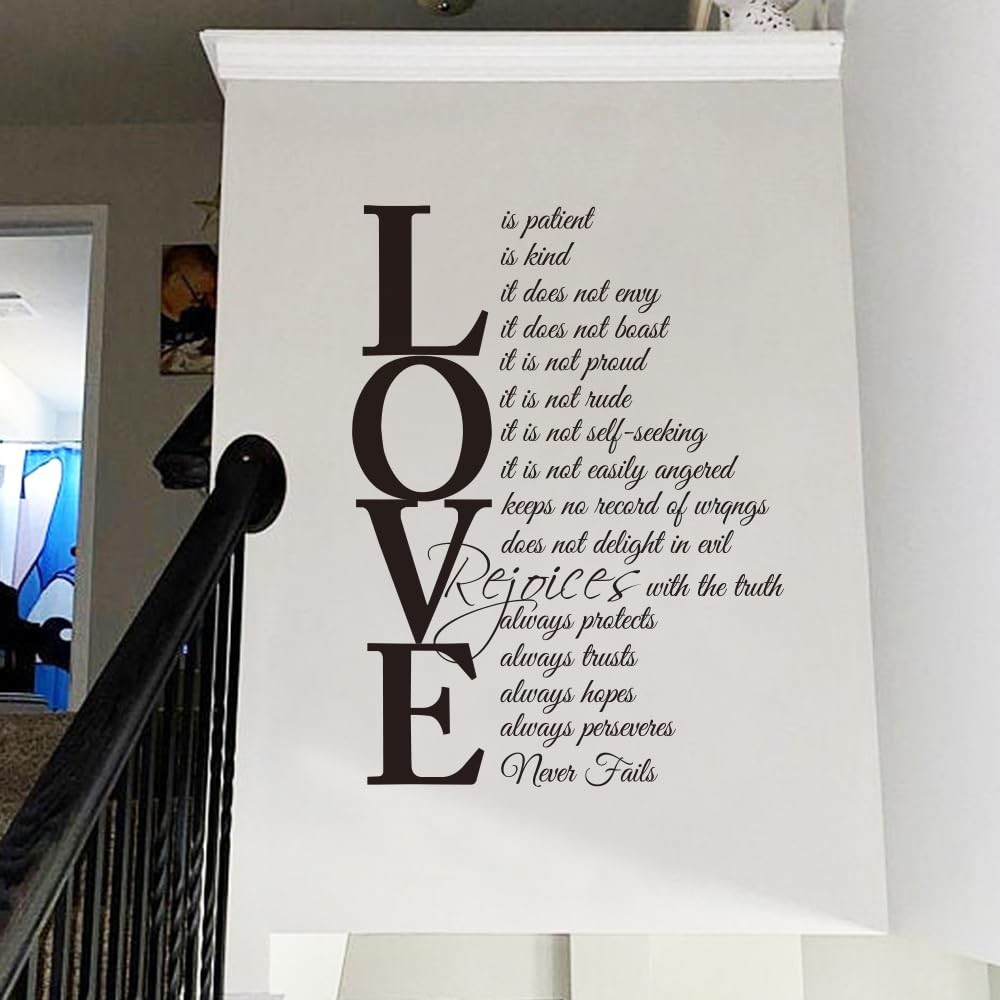 LOVE
is patient
is kind
it does not envy
it does not boast
it is not proud
it is not rude
it is not self-seeking
it is not easily angered
keeps no record of wrqngs
does not delight in evil
Rejoices with the truth
always protects
always trusts
always hopes
always perseveres
Never Fails